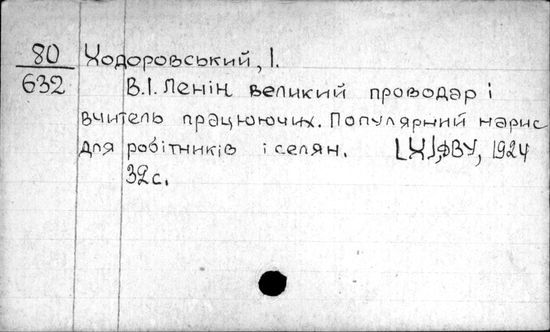 80 Ходоровський, І.
632 В.І. Ленін великий проводар і
вчитель працюючих. Популярний нарис
для робітників і селян. [Х], ДВУ, 1924
32с.